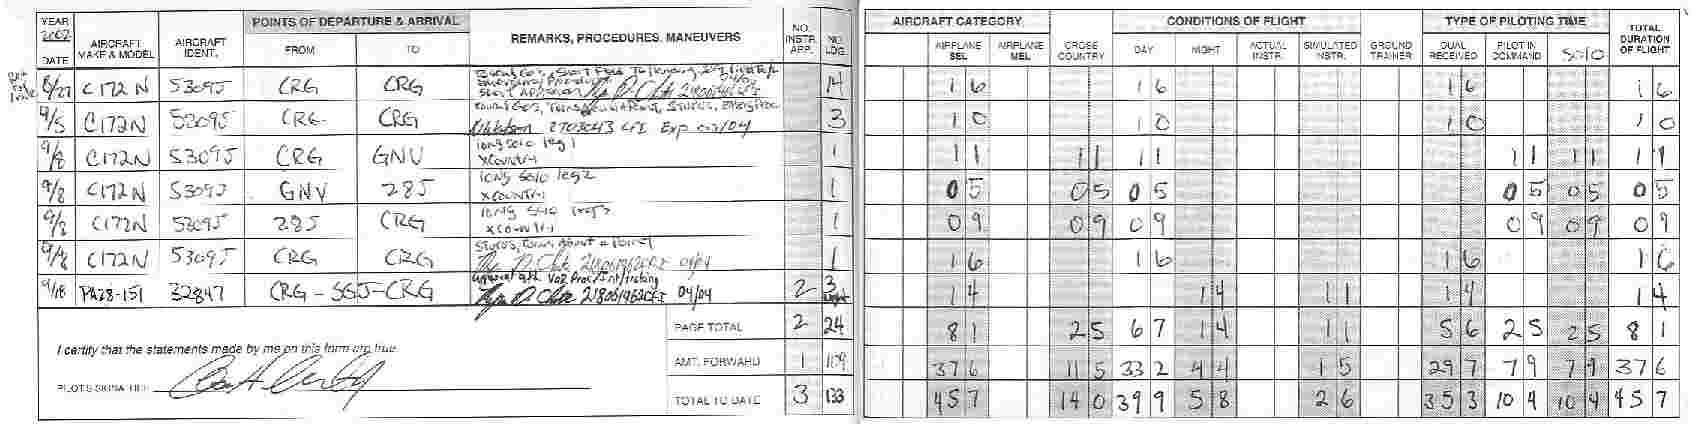 YEAR 2002 POINTS OF DEPARTURE & ARRIVAL NO. INSTR. APP. NO. LDG. AIRCRAFT CATEGORY CONDITIONS OF FLIGHT TYPE OF PILOTING TIME TOTAL DURATION OF FLIGHT
DATE AIRCRAFT MAKE & MODEL AIRCRAFT IDENT. FROM TO REMARKS, PROCEDURES, MANEUVERS AIRPLANE SEL AIRPLANE MEL CROSS COUNTRY DAY NIGHT ACTUAL INSTR. SIMULATED INSTR. GROUND TRAINER DUAL RECEIVED PILOT IN COMMAND SOLO
8/27 C172N 5309J CRG CRG 14 1 6 1 6 1 6 1 6
9/5 C172N 5309J CRG CRG 2703043 CFI Exp 3 1 0 1 0 1 0 1 0
9/8 C172N 5309J CRG GNV long solo leg 1 xCountry 1 1 1 1 1 1 1 1 1 1 1 1 1
9/8 C172N 5309J GNV 28J long solo leg 2 xCountry 1 0 5 0 5 0 5 0 5 0 5 0 5
9/8 C172N 5309J 28J CRG long solo xCountry 1 0 9 0 9 0 9 0 9 0 9 0 9
C172N 5309J CRG CRG 04/04 1 1 6 1 6 1 6 1 6
9/18 PA28-151 32847 CRG – SGJ – CRG 04/04 2 3 1 4 1 4 1 1 1 4 1 4
PAGE TOTAL 2 24 8 1 2 5 6 7 1 4 1 1 5 6 2 5 2 5 8 1
I certify that the statements made by me on this form are true.
AMT. FORWARD 1 109 37 6 11 5 33 2 4 4 1 5 29 7 7 9 7 9 37 6
PILOT'S SIGNATURE
TOTAL TO DATE 3 133 45 7 14 0 39 9 5 8 2 6 35 3 10 4 10 4 45 7